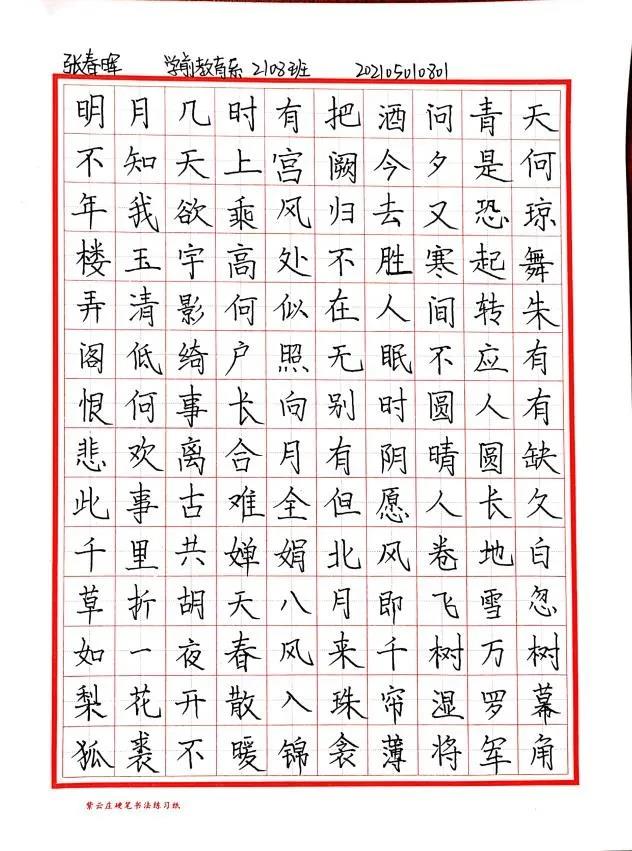 张春晖 学前教育系 2108班 202105010801
明月几时有把酒问青天
不知天上宫阙今夕是何
年我欲乘风归去又恐琼
楼玉宇高处不胜寒起舞
弄清影何似在人间转朱
阁低绮户照无眠不应有
恨何事长向别时圆人有
悲欢离合月有阴晴圆缺
此事古难全但愿人长久
千里共婵娟北风卷地白
草折胡天八月即飞雪忽
如一夜春风来千树万树
梨花开散入珠帘湿罗幕
狐裘不暖锦衾薄将军角
紫云庄硬笔书法练习纸